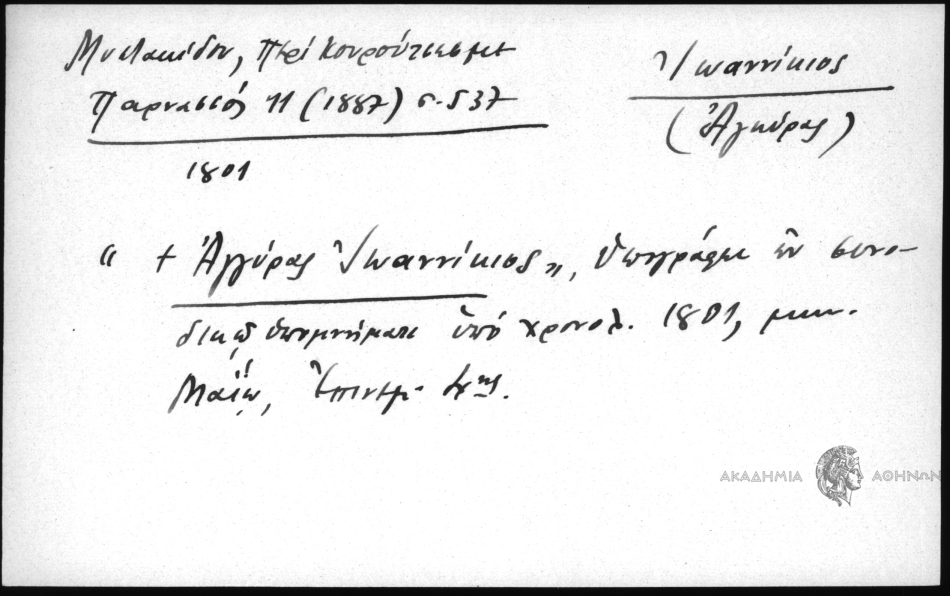 Μυστακίδου, Περὶ Κουροὺτσεσμε
Παρνασσός 11 (1887) σ. 537
Ἰωαννίκιος
(Ἀγκύρας)
1801
“ + Ἀγκύρας Ἰωαννίκιος „, ὑπογράφει ἐν συνο-
δικῷ ὑπομνήματι ὑπὸ χρονολ. 1801, μην.
Μαΐῳ, Ἐπινεμ. 4ης.
ΑΚΑΔΗΜΙΑ ΑΘΗΝΩΝ